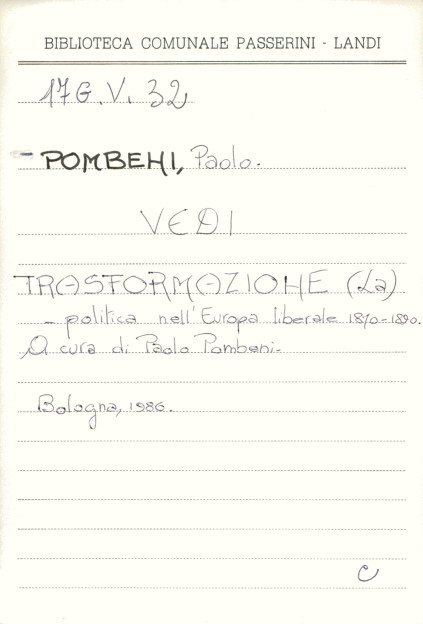 BIBLIOTECA COMUNALE PASSERINI - LANDI
17 G. V. 32
- POMBENI, Paolo.
VEDI
TRASFORMAZIONE (La)
- politica nell'Europa liberale 1870-1890.
A cura di Paolo Pombeni-
Bologna, 1986.
C